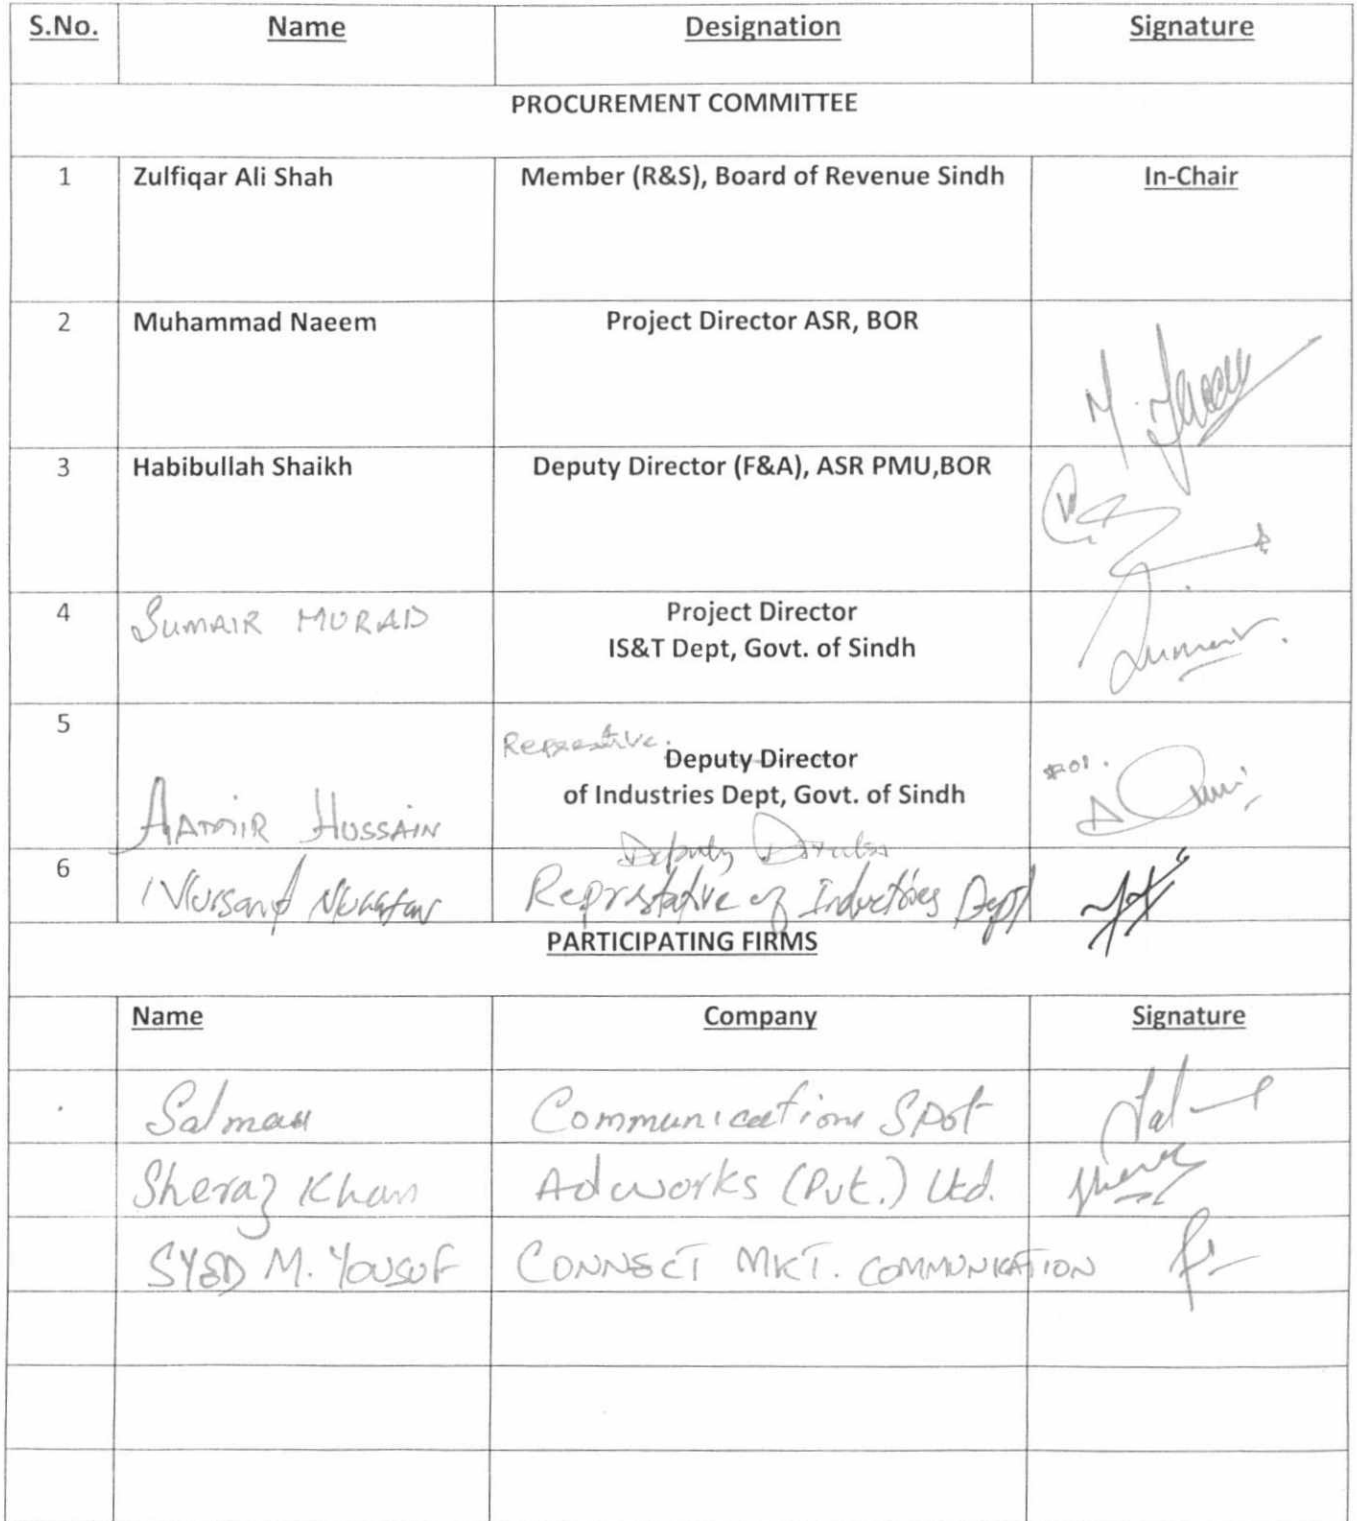 S.No. Name Designation Signature
PROCUREMENT COMMITTEE
1 Zulfiqar Ali Shah Member (R&S), Board of Revenue Sindh In-Chair
2 Muhammad Naeem Project Director ASR, BOR
M. Naeem
3 Habibullah Shaikh Deputy Director (F&A), ASR PMU,BOR
4 SUMAIR MURAD Project Director
IS&T Dept, Govt. of Sindh
Sumair.
5
Deputy Director
of Industries Dept, Govt. of Sindh
AAMIR HUSSAIN
Deputy Director
6 of Industries Dept
PARTICIPATING FIRMS
Name Company Signature
Salman Communications Spot
Sheraz Khan Adworks (Pvt.) Ltd.
SYED M. YOUSUF CONNECT MKT. COMMUNICATION